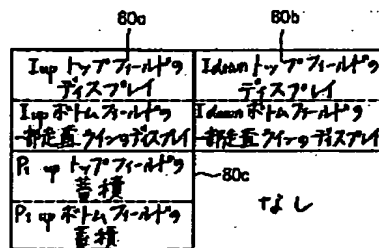 80a
80b
Iup トップフィールドの
ディスプレイ
Idown トップフィールドの
ディスプレイ
Iup ボトムフィールドの
一部走査ラインのディスプレイ
Idown ボトムフィールドの
一部走査ラインのディスプレイ
P1 up トップフィールドの
蓄積
P1 up ボトムフィールドの
蓄積
80c
なし